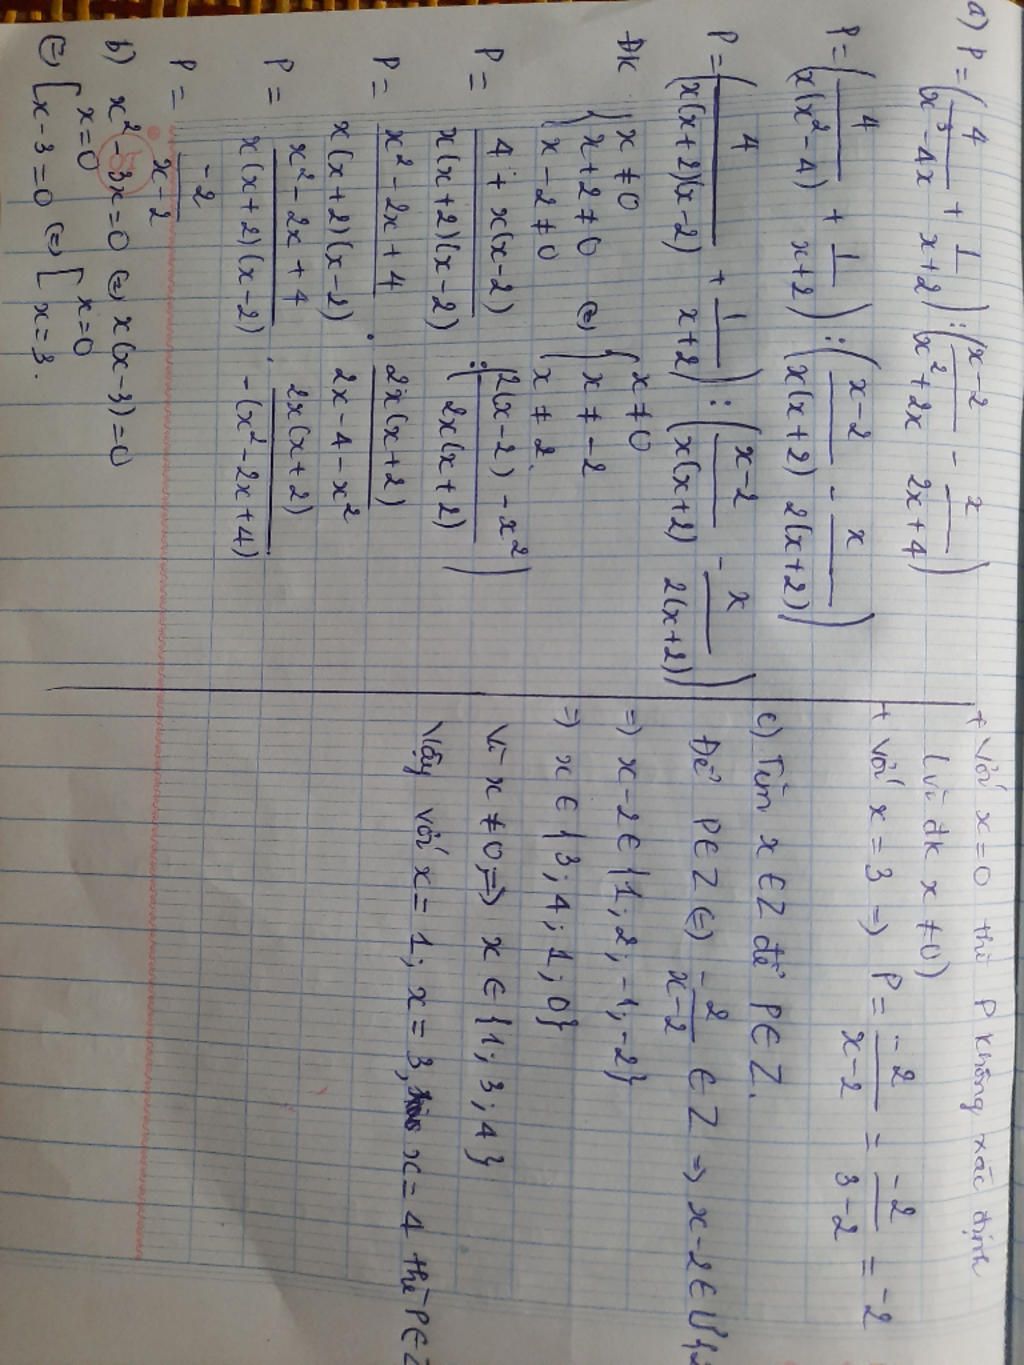 a) P = (4/(x³ - 4x) + 1/(x+2)) : ((x-2)/(x²+2x) - x/(2x+4))
P = (4/(x(x²-4)) + 1/(x+2)) : ((x-2)/(x(x+2)) - x/(2(x+2)))
P = (4/(x(x+2)(x-2)) + 1/(x+2)) : ((x-2)/(x(x+2)) - x/(2(x+2)))
ĐK { x ≠ 0
x+2 ≠ 0
x-2 ≠ 0
⇔ { x ≠ 0
x ≠ -2
x ≠ 2.
P = (4 + x(x-2))/(x(x+2)(x-2)) : ((2(x-2) - x²)/(2x(x+2)))
P = (x² - 2x + 4)/(x(x+2)(x-2)) . (2x(x+2))/(2x - 4 - x²)
P = (x² - 2x + 4)/(x(x+2)(x-2)) . (2x(x+2))/(-(x² - 2x + 4))
P = -2/(x-2)
b) x² - 3x = 0 ⇔ x(x-3) = 0
⇔ [ x = 0
x - 3 = 0 ⇔ [ x = 0
x = 3.
+ Với x = 0 thì P không xác định
(vì đk x ≠ 0)
+ Với x = 3 ⇒ P = -2/(x-2) = -2/(3-2) = -2
c) Tìm x ∈ Z để P ∈ Z.
Để P ∈ Z ⇔ -2/(x-2) ∈ Z ⇒ x-2 ∈ Ư(2
⇒ x-2 ∈ {1; 2; -1; -2}
⇒ x ∈ {3; 4; 1; 0}
Vì x ≠ 0 ⇒ x ∈ {1; 3; 4}
Vậy với x = 1; x = 3, x = 4 thì P ∈ Z